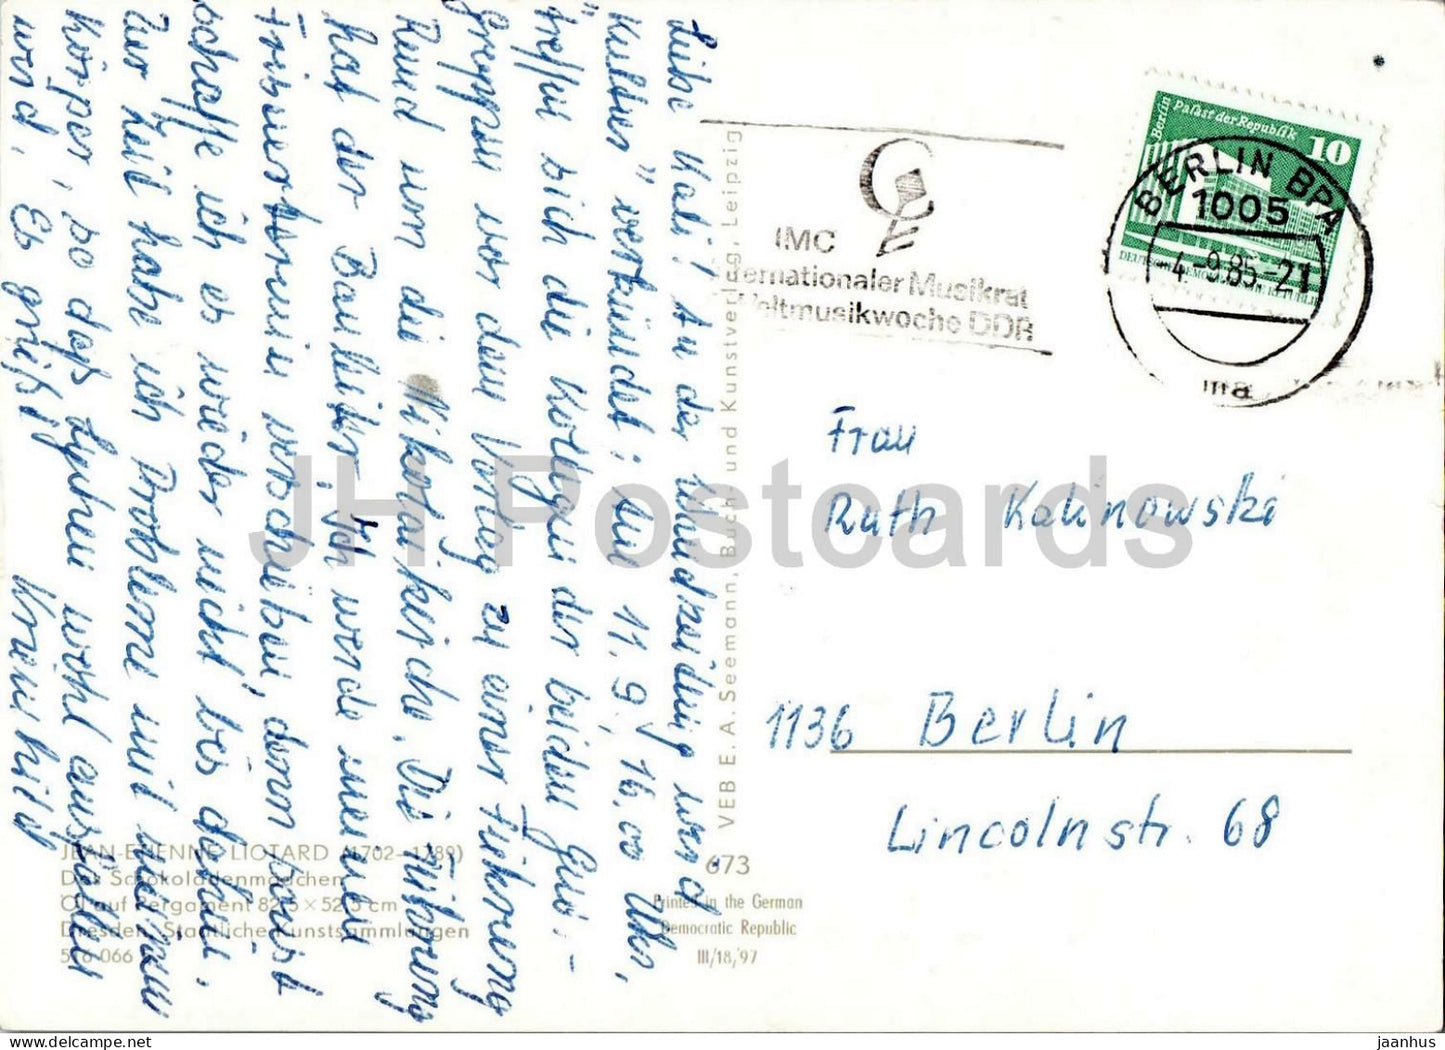 Liebe Kali! An der Wandzeitung wird
"Kultur" verkündet: Am 11.9., 16.00 Uhr,
treffen sich die Kollegen der beiden
Gruppen vor dem Verlag zu einer Führung
Rund um die Nikolaikirche. Die Führung
hat der Bauleiter. Ich werde meinen
Friseurtermin verschieben, denn sonst
schaffe ich es wieder nicht bis dahin.
Zur Zeit habe ich Probleme mit meinem
Körper, so daß Lychen wohl ausfallen
wird. Es grüßt
Kriemhild
JEAN-ETIENNE LIOTARD (1702—1789)
Das Schokoladenmädchen
Öl auf Pergament 82,5 × 52,5 cm
Dresden, Staatliche Kunstsammlungen
516 066
VEB E. A. Seemann, Buch- und Kunstverlag, Leipzig
673
Printed in the German
Democratic Republic
III/18/97
IMC
Internationaler Musikrat
Weltmusikwoche DDR
Berlin Palast der Republik
10
DEUTSCHE DEMOKRATISCHE REPUBLIK
BERLIN BPA
1005
-4.-9.85.-21
ma
Frau
Ruth Kalinowski
1136 Berlin
Lincolnstr. 68
JH Postcards
jaanhus